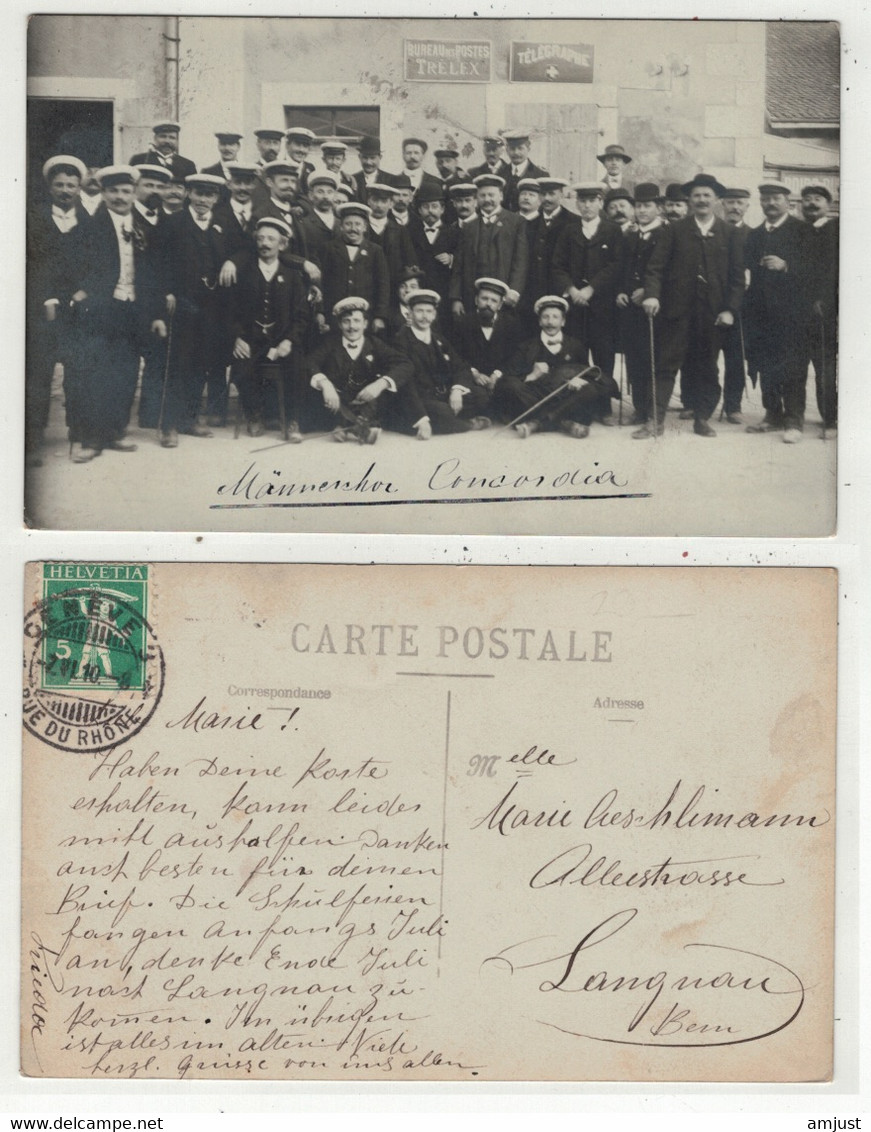 BUREAU DES POSTES
TRÉLEX
TÉLÉGRAPHE
Männerchor Concordia
HELVETIA
5
GENÈVE
-7.VI.10.-
RUE DU RHÔNE
CARTE POSTALE
Correspondance
Adresse
Marie!
Haben Deine Karte
erhalten, kann leider
nicht aushelfen. Danken
auch besten für deinen
Brief. Die Schulferien
fangen Anfangs Juli
an, denke Ende Juli
nach Langnau zu-
kommen. Im übrigen
ist alles im alten. Viele
herzl. Grüsse von uns allen.
Melle
Marie Aeschlimann
Alleestrasse
Langnau
Bern
amjust